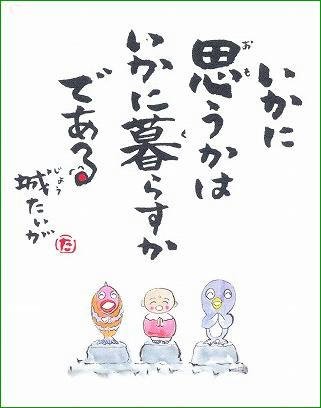 いかに
思うかは
いかに暮らすか
である
城たいが
おも
く
じょう
た